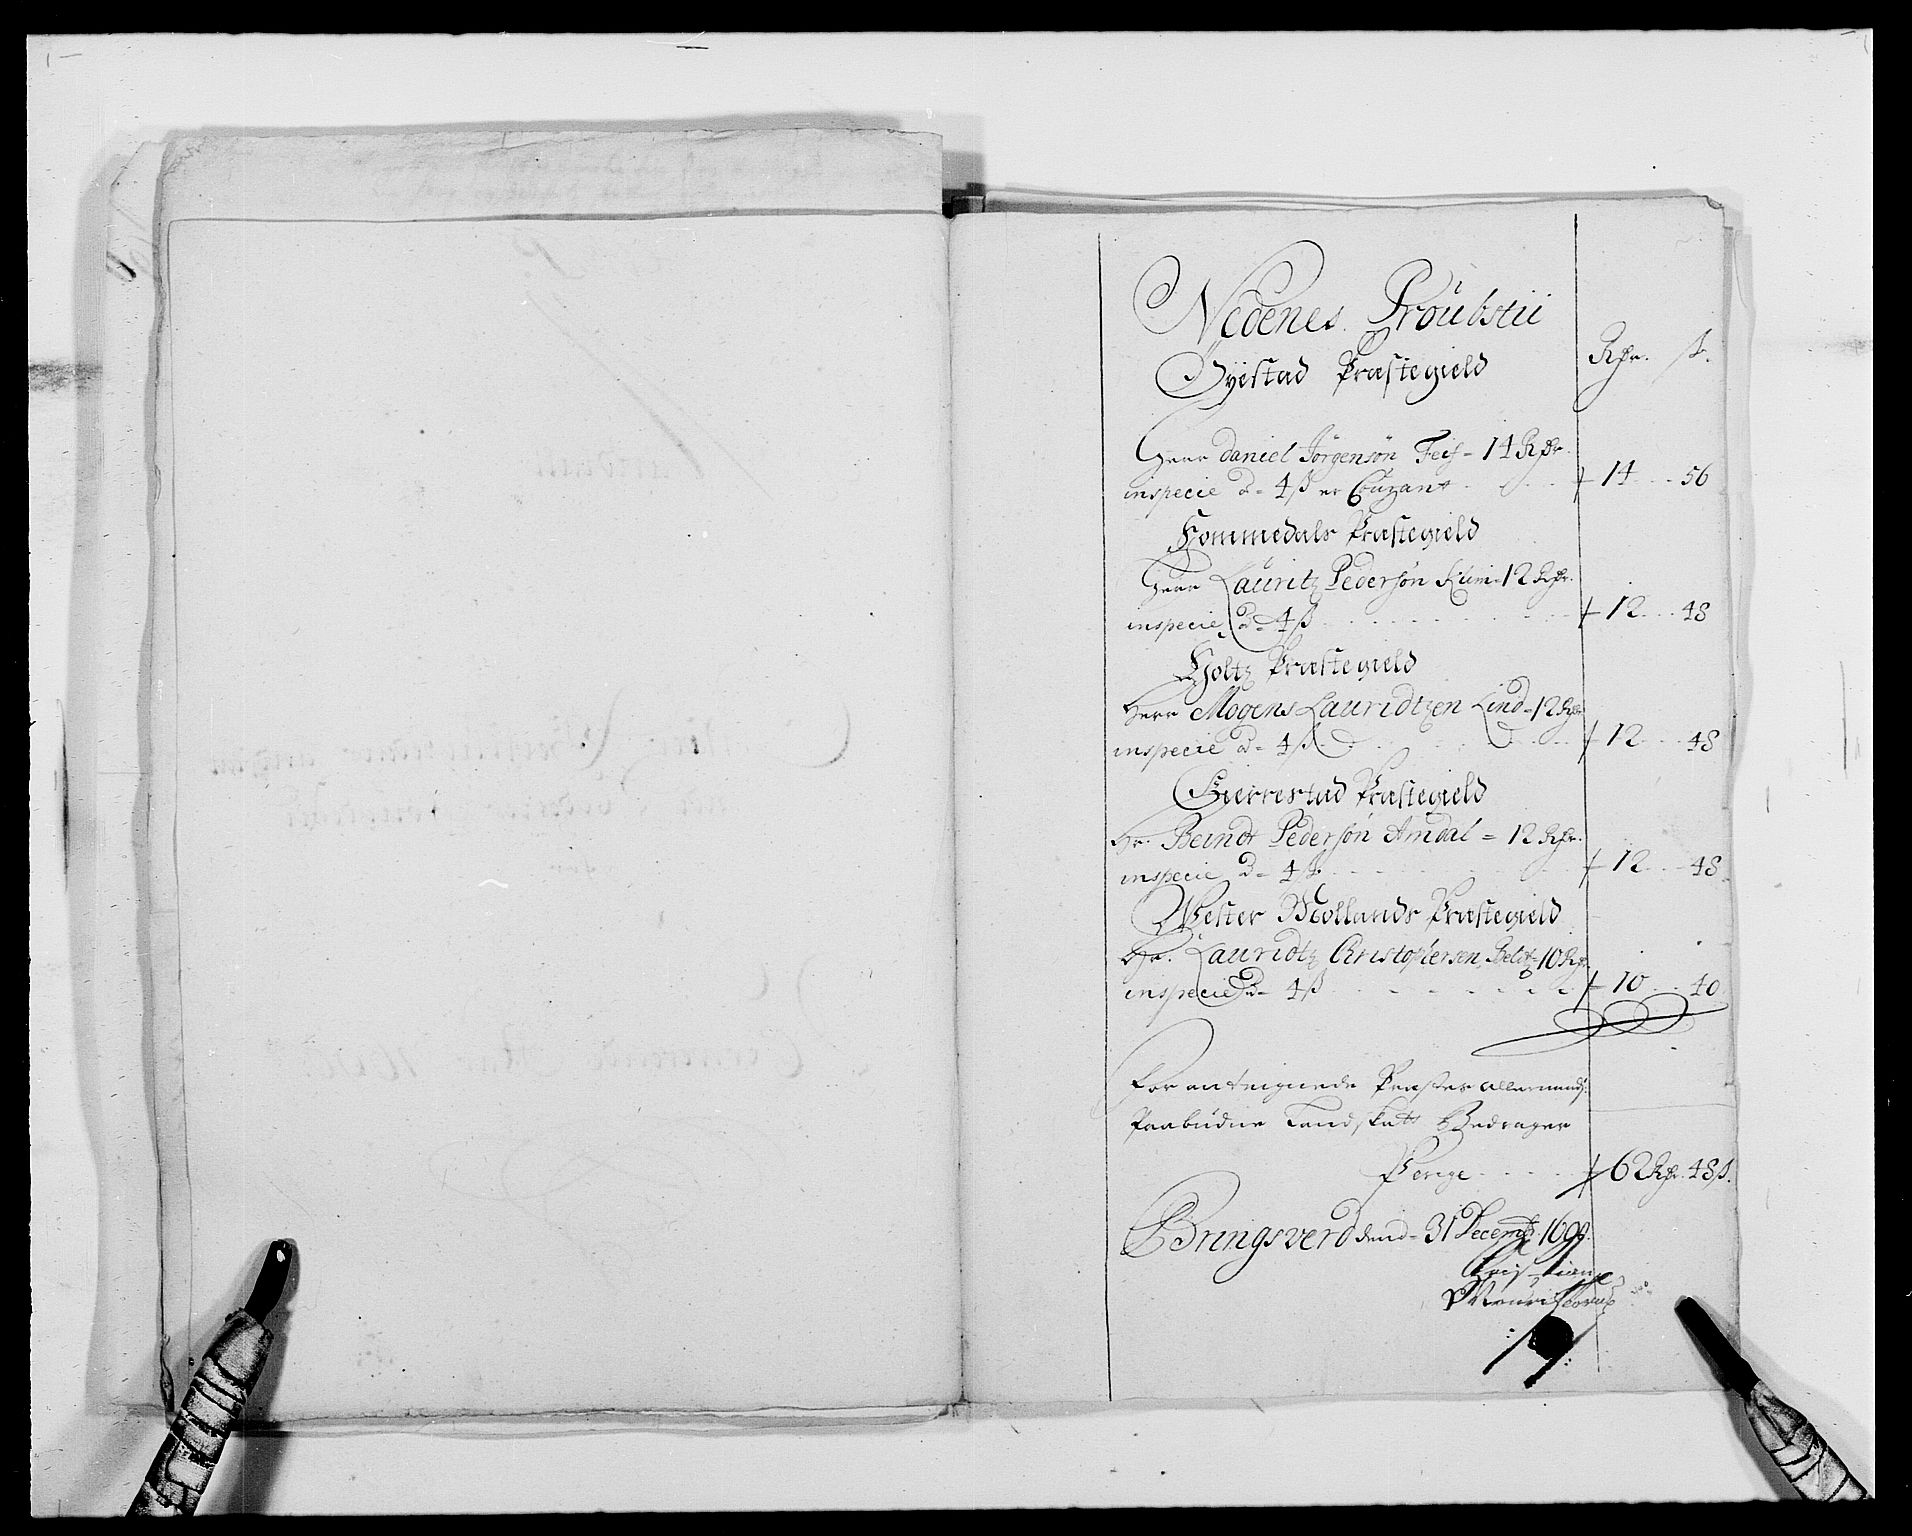 NedenesProübstii
Rdr. ß.
Øyestad Præstegield
Herr Daniel Jörgensøn Feis - 14 Rdr.
inspecie à - 4 ß er Couzant + 14 56
Hommedals Præstegield
Herr Lauritz Pedersøn - 12 Rdr.
inspecie à - 4 ß + 12 48
Holtz Præstegield
Herr Mogens Lauridtzen Lind - 12 Rdr
inspecie à - 4 ß + 12 48
Gierrestad Præstegield
Hr. Berndt Pedersøn Amdal - 12 Rdr.
inspecie à - 4 ß + 12 48
Wester Mollands Præstegield
Hr. Lauridtz Christophersen - 10 Rdr.
inspecie à - 4 ß + 10 40
For an teignede Præster allernaads:
Paabudne Landskatt Bedrager
Penge + 62 Rdr. 48 ß.
Bringsverd dend - 31 Decemb: 1690.
Christian